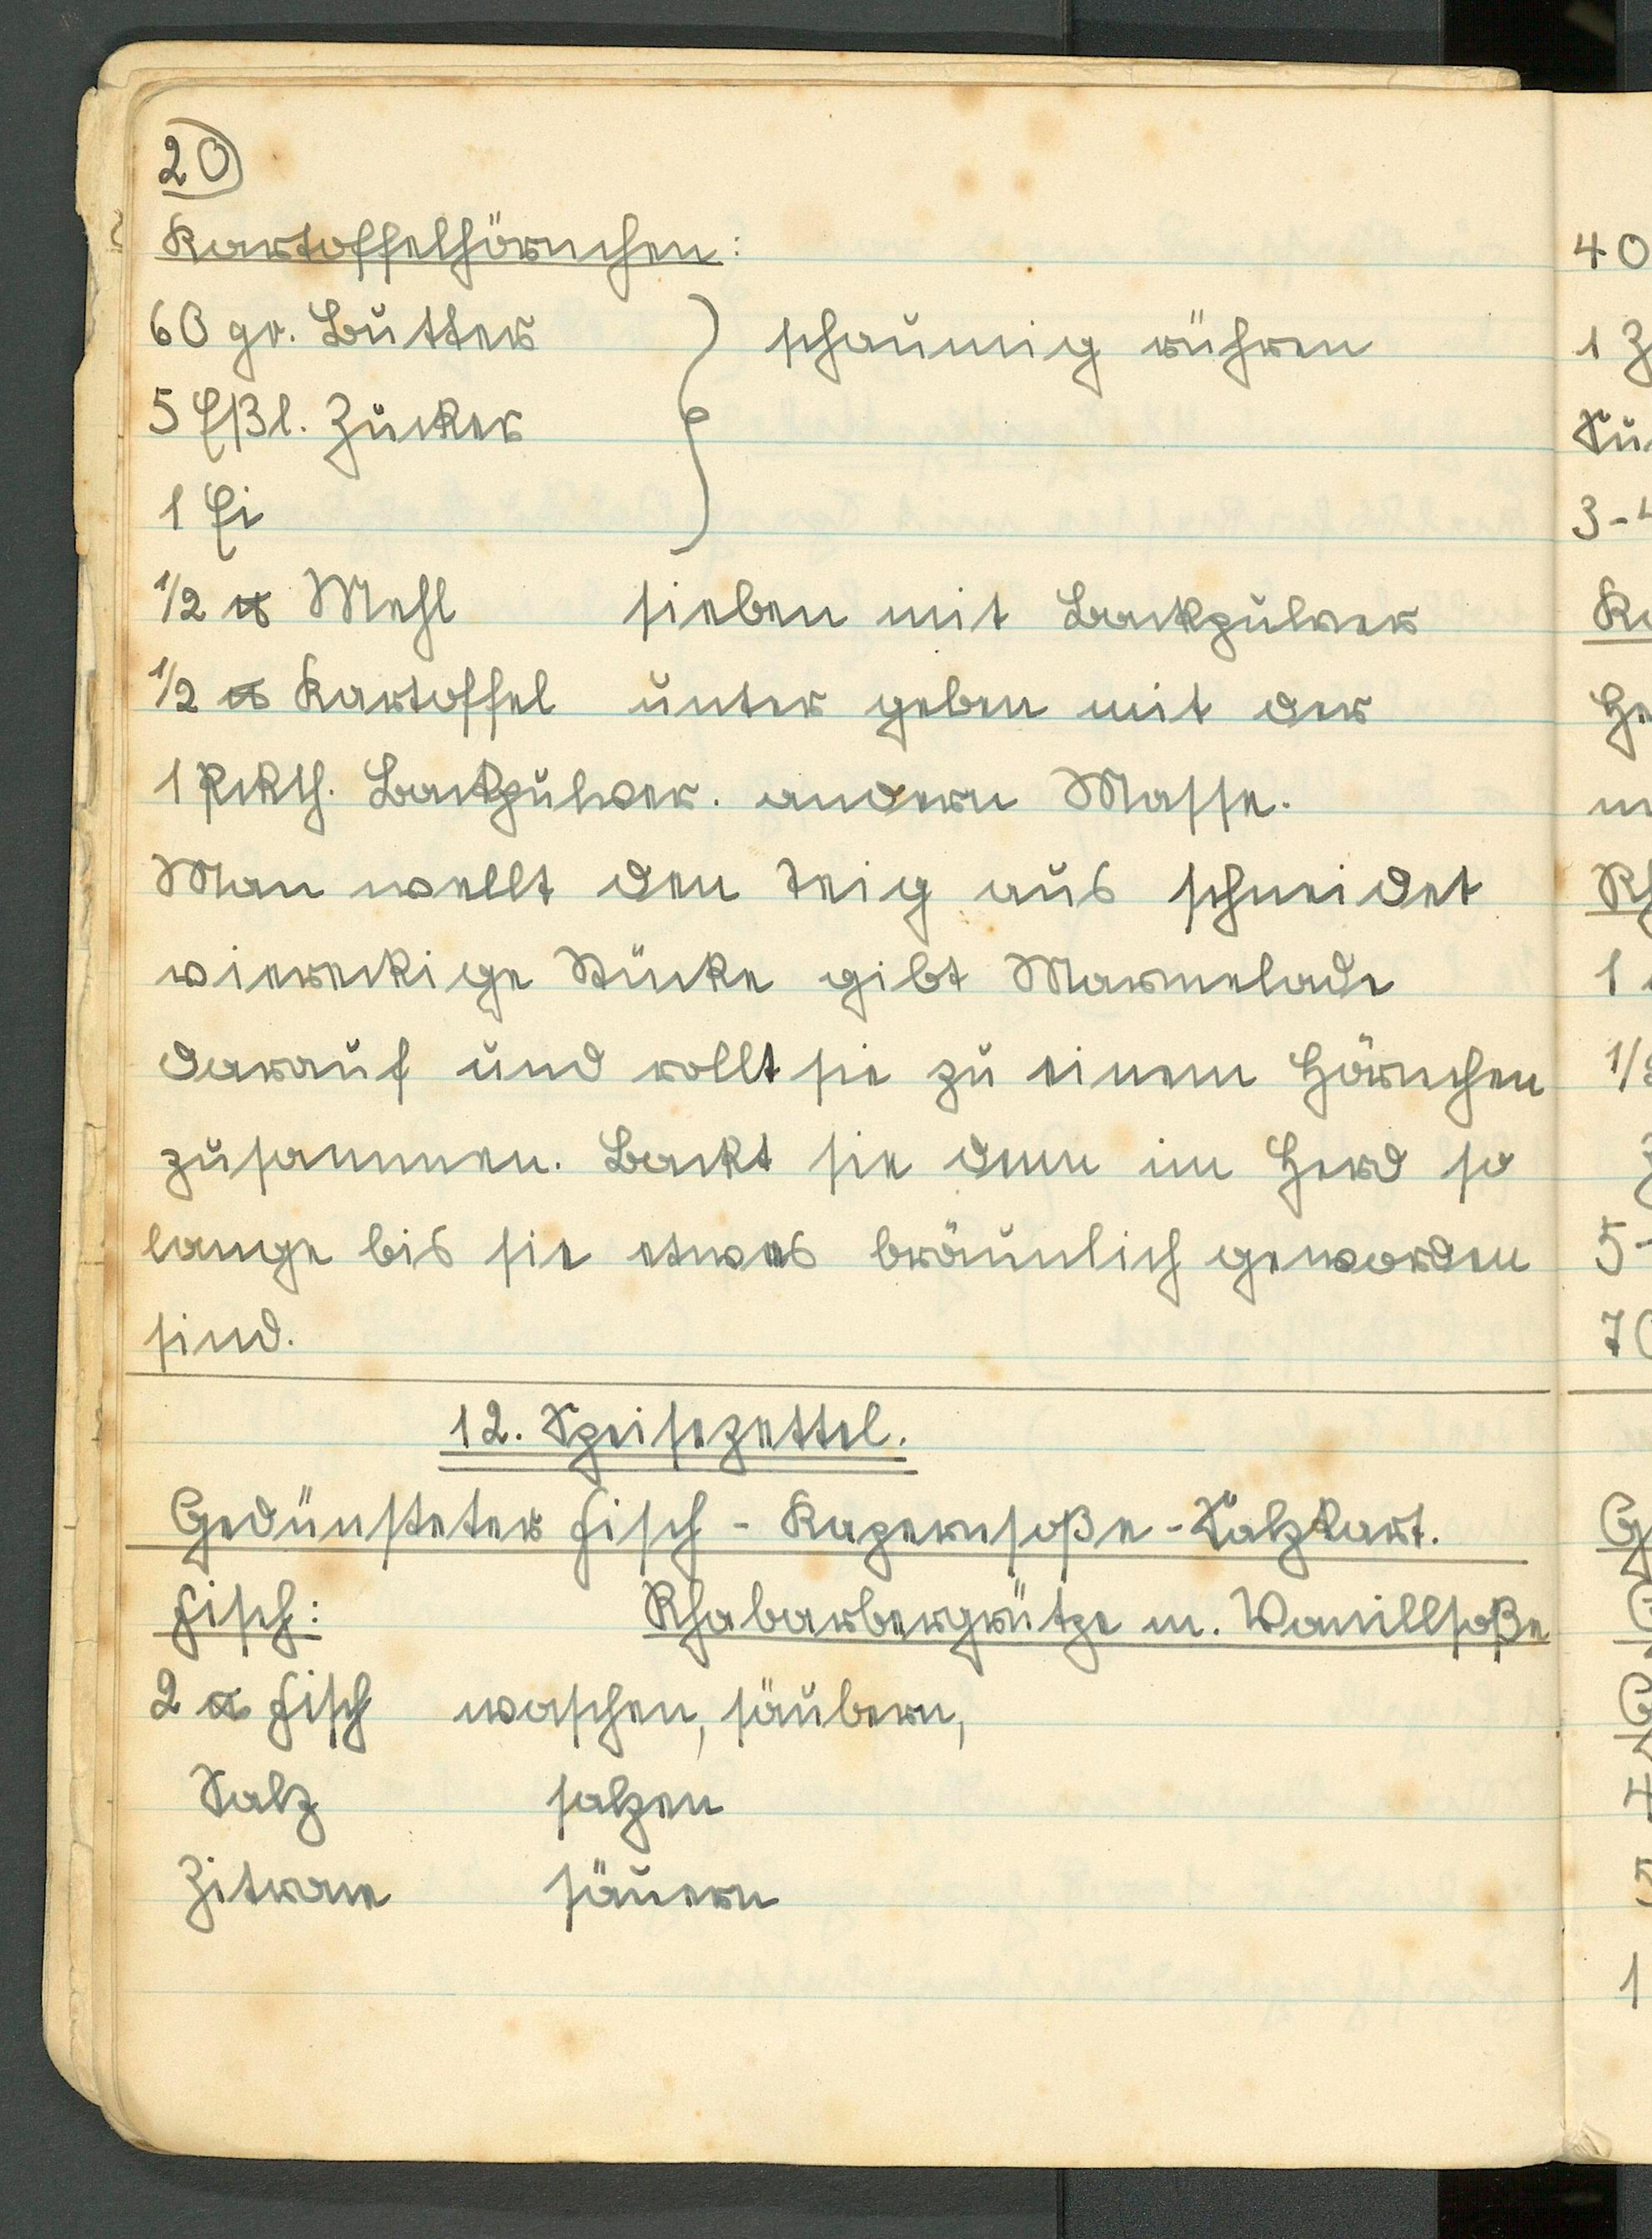 20
Kartoffelhörnchen:
60 gr. Butter } schaumig rühren
5 Eßl. Zucker
1 Ei
1/2 ℔ Mehl sieben mit Backpulver
1/2 ℔ Kartoffel unter geben mit der
1 Pckch. Backpulver. andern Masse.
Man wellt den Teig aus schneidet
viereckige Stücke gibt Marmelade
darauf und rollt sie zu einem Hörnchen
zusammen. Backt sie dann im Herd so
lange bis sie etwas bräunlich geworden
sind.
12. Speisezettel.
Gedünsteter Fisch - Kapernsoße - Salzkart.
Fisch: Rhabarbergrütze m. Vanillsoße
2 ℔ Fisch waschen, säubern,
Salz salzen
Zitrone säuern
40
1 Z
3-4
Ka
He
Rh
1
5-
G
4
5
1